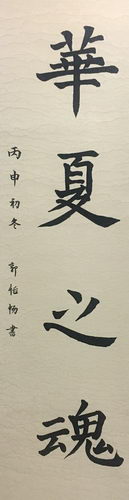 華夏之魂
丙申初冬 郭伯畅書